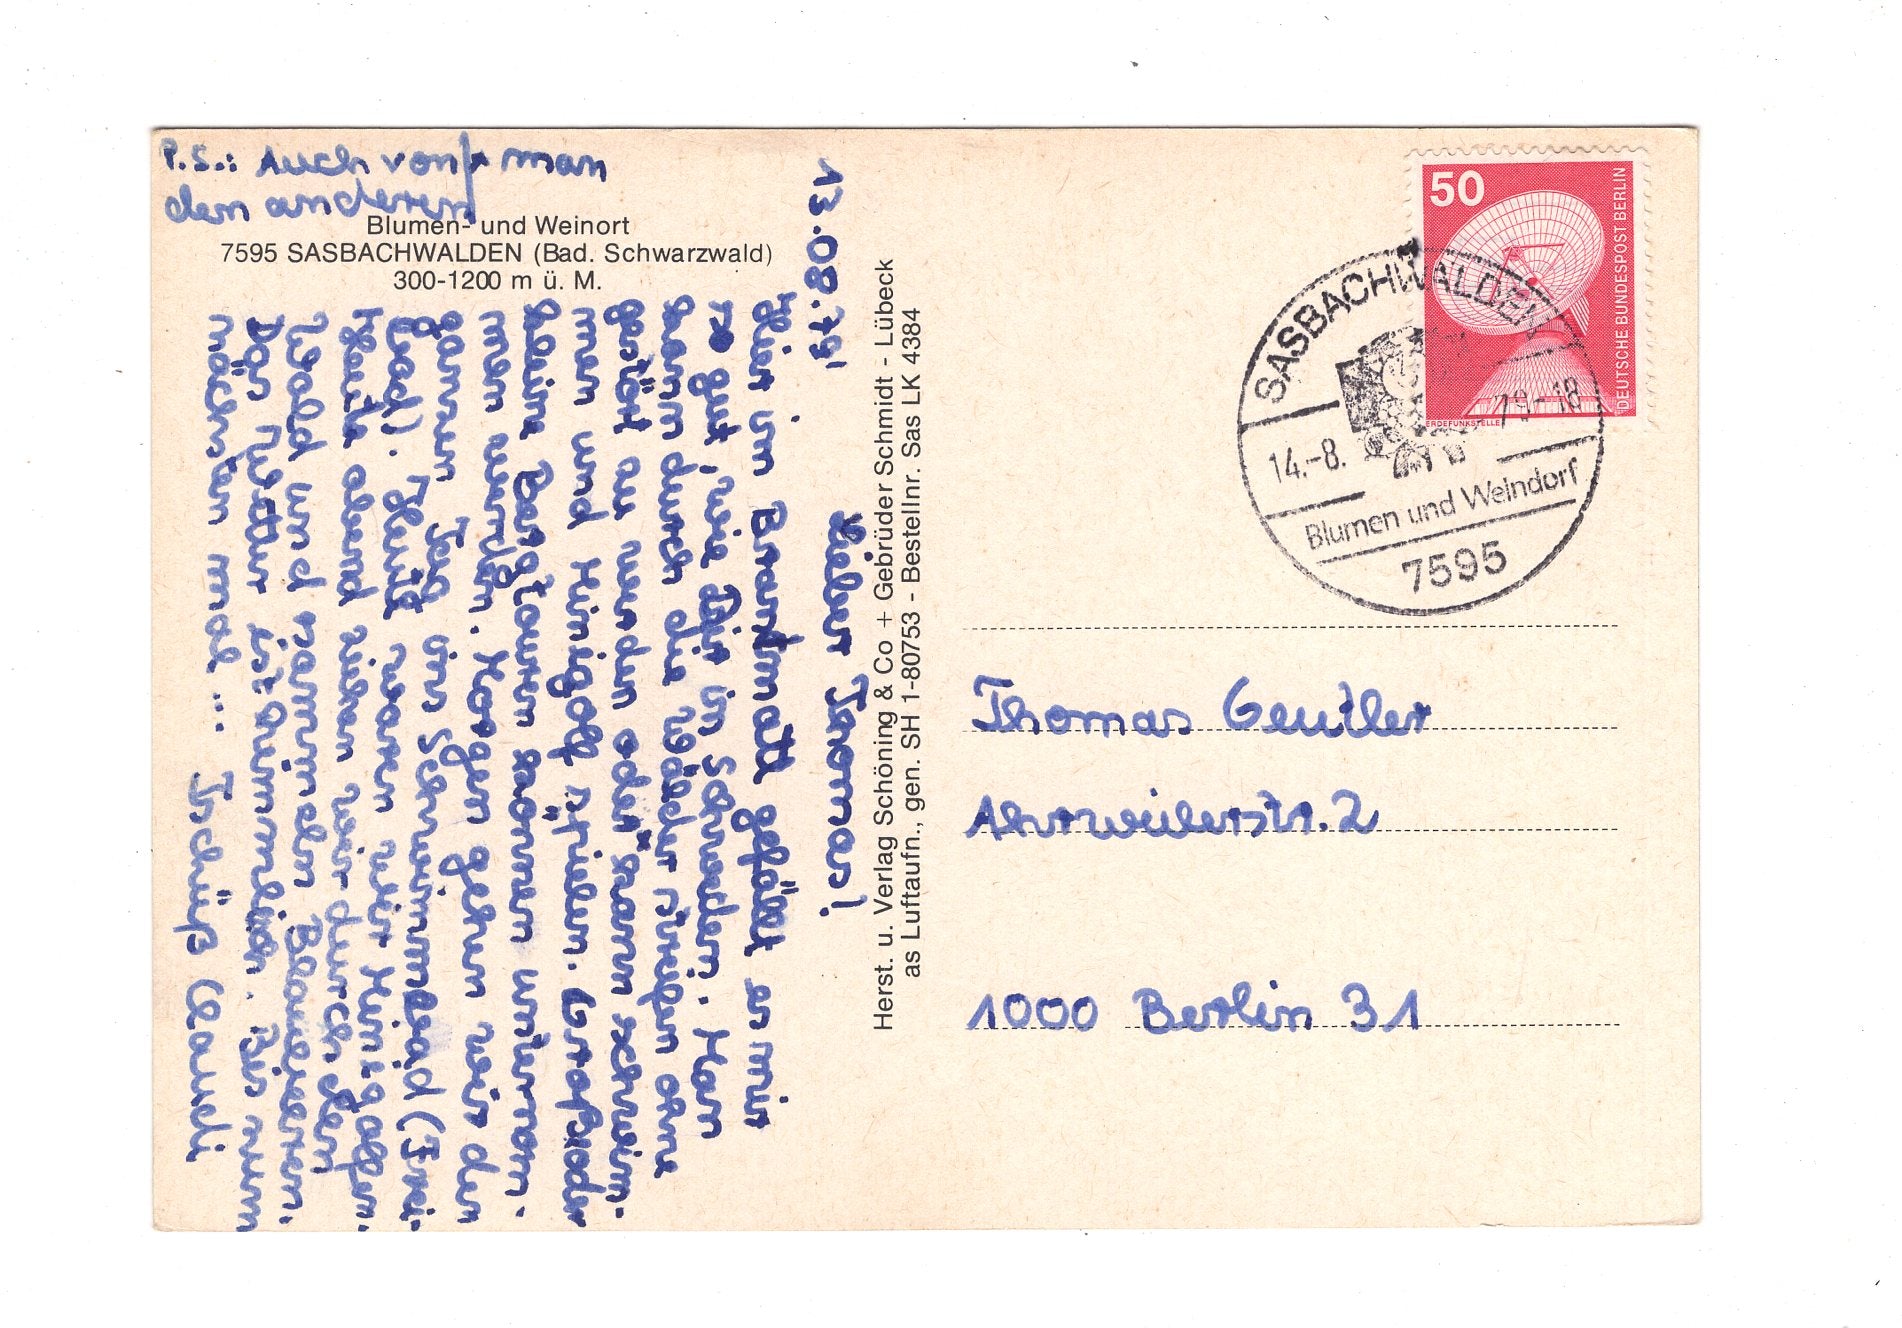 P.S.: Auch von man
den anderen
Blumen- und Weinort
7595 SASBACHWALDEN (Bad. Schwarzwald)
300-1200 m ü. M.
13.08.79
Lieber Thomas!
Hier im Brandmatt gefällt es mir
so gut, wie Dir in Schweden. Man
kann durch die Wälder streifen ohne
gestört zu werden oder kann schwim-
men und Minigolf spielen. Große oder
kleine Bergtouren können unternom-
men werden. Morgen gehen wir den
ganzen Tag ins Schwimmbad (Frei-
bad). Heute waren wir Minigolfen.
Heute abend ziehen wir durch den
Wald und sammeln Blaubeeren.
Das Wetter ist ziemlich. Bis zum
nächsten mal...
Tschüß Claudi
Herst. u. Verlag Schöning & Co + Gebrüder Schmidt - Lübeck
as Luftaufn., gen. SH 1-80753 - Bestellnr. Sas LK 4384
50
DEUTSCHE BUNDESPOST BERLIN
ERDEFUNKSTELLE
SASBACHWALDEN
14.-8. 79-18
Blumen und Weindorf
7595
Thomas Geutler
Ahrweilerstr. 2
1000 Berlin 31